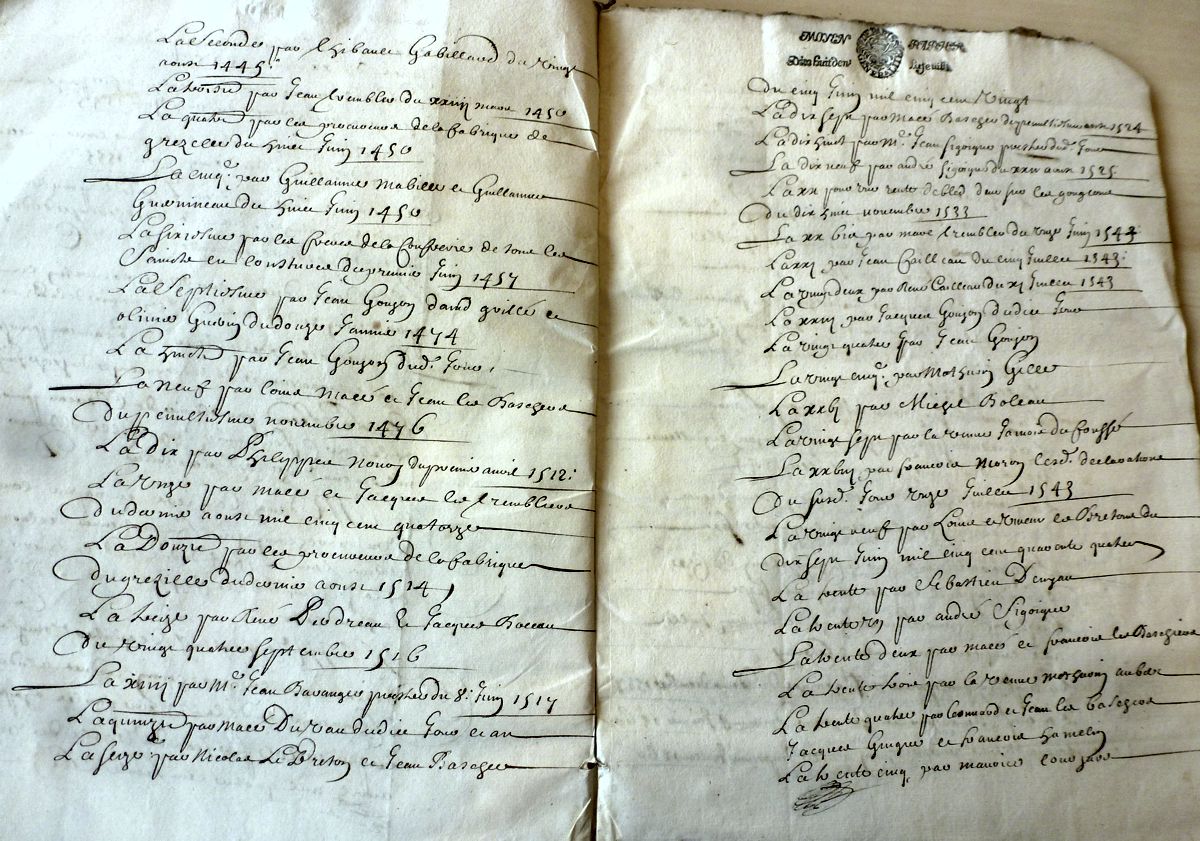 La Seconde par Thibault Gabillard du vingt
aoust 1445
La troisie par Jean Trembles du xxiiij mars 1450
La quatre par les procureurs de la fabrique de
grezille du huict Juin 1450
La cinq. par Guillaume Mabille et Guillaume
du huict Juin 1450
La sixiesme par les freres de la Confrerie de tous les
Saincts en du premier Juin 1457
La Septiesme par Jean Goujon et
olivier du douze Janvier 1474
La huict par Jean Goujon dud. Jour
La neuf par Louis Macé et Jean les Baschers
Du penultiesme novembre 1476
La Dix par Phelippes du premier avril 1512
La unze par macé et Jacques les Trembliers
du doucie aoust mil cinq cent quatorze
La Douzie par les procureurs de la fabrique
du grezille du doucie aoust 1514
La treize par René et Jacques
Du vingt quatre septembre 1516
La xiiij par Me. Jean prestre du 8. Juin 1517
La quinzie par Macé Du dudict Jour et an
La seize par Nicolas Le Breton et Jean Bascher
MOYEN PAPIER
Du cinq Juin mil cinq cent vingt
La dix sept par Macé Bascher du penultiesme aoust 1524
La dix huict par Me. Jean Sigoigne prestre dud. Jour
La dix neuf par andré Sigoigne du xxiv aoust 1525
La xx pour une rente de bled deue sur les
Du dix huict novembre 1533
La xx bis par macé Trembles du unze Juin 1543
La xxj par Jean Cailleau du cinq Juillet 1543
La vingt deux par René Cailleau du xj Juillet 1543
La xxiij par Jacques Goujon dudict Jour
La vingt quatre par Jean Goujon
La vingt cinq. par Mathurin Gille
La xxvj par Michel Boleau
La vingt sept par la veuve du fousse
La xxviij par francois Moron lesd. declarations
Du susd. Jour unze Juillet 1543
La vingt neuf par Louis et les Bretons du
dix sept Juin mil cinq cent quarente quatre
La trente par Sebastien
La trente un par andré Sigoigne
La trente deux par macé et francois les Baschers
La trente trois par la veuve mathurin
La trente quatre par Leonnard et Jean les baschers
Jacques et francois hamelin
La trente cinq. par maurice